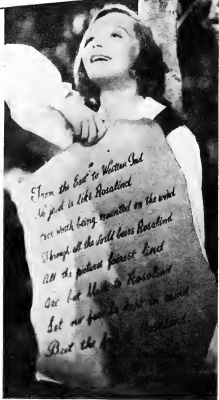 From the East to Western Ind
No jewel is like Rosalind
Her worth being mounted on the wind
Through all the World bears Rosalind
All the pictures fairest lind
Are but black to Rosalind
Let no face be kept in mind
But the Rosalind